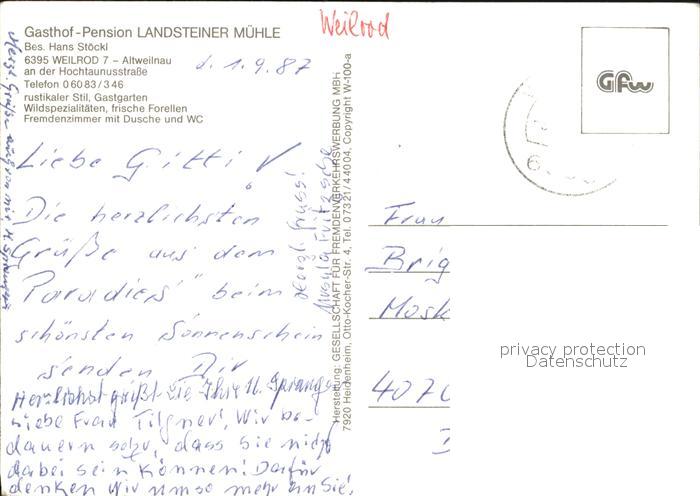 Weilrod
Gasthof-Pension LANDSTEINER MÜHLE
Bes. Hans Stöckl
6395 WEILROD 7 – Altweilnau
an der Hochtaunusstraße
Telefon 0 60 83 / 3 46
rustikaler Stil, Gastgarten
Wildspezialitäten, frische Forellen
Fremdenzimmer mit Dusche und WC
d. 1.9.87
Liebe Gitti!
Die herzlichsten
Grüße aus dem
"Paradies" beim
schönsten Sonnenschein
senden Dir
Herzlichst grüßt Sie Ihr H.
Liebe Frau Tilgner! Wir be-
dauern sehr, dass Sie nicht
dabei sein können! Dafür
denken wir umso mehr an Sie!
Herzl. Grüße auch von mir H.
Herzl. Gruss!
Herstellung: GESELLSCHAFT FÜR FREMDENVERKEHRSWERBUNG MBH
7920 Heidenheim, Otto-Kocher-Str. 4, Tel. 07321/44004, Copyright W-100-a
Gfw
Frau
Brig
Mosk
4070
privacy protection
Datenschutz